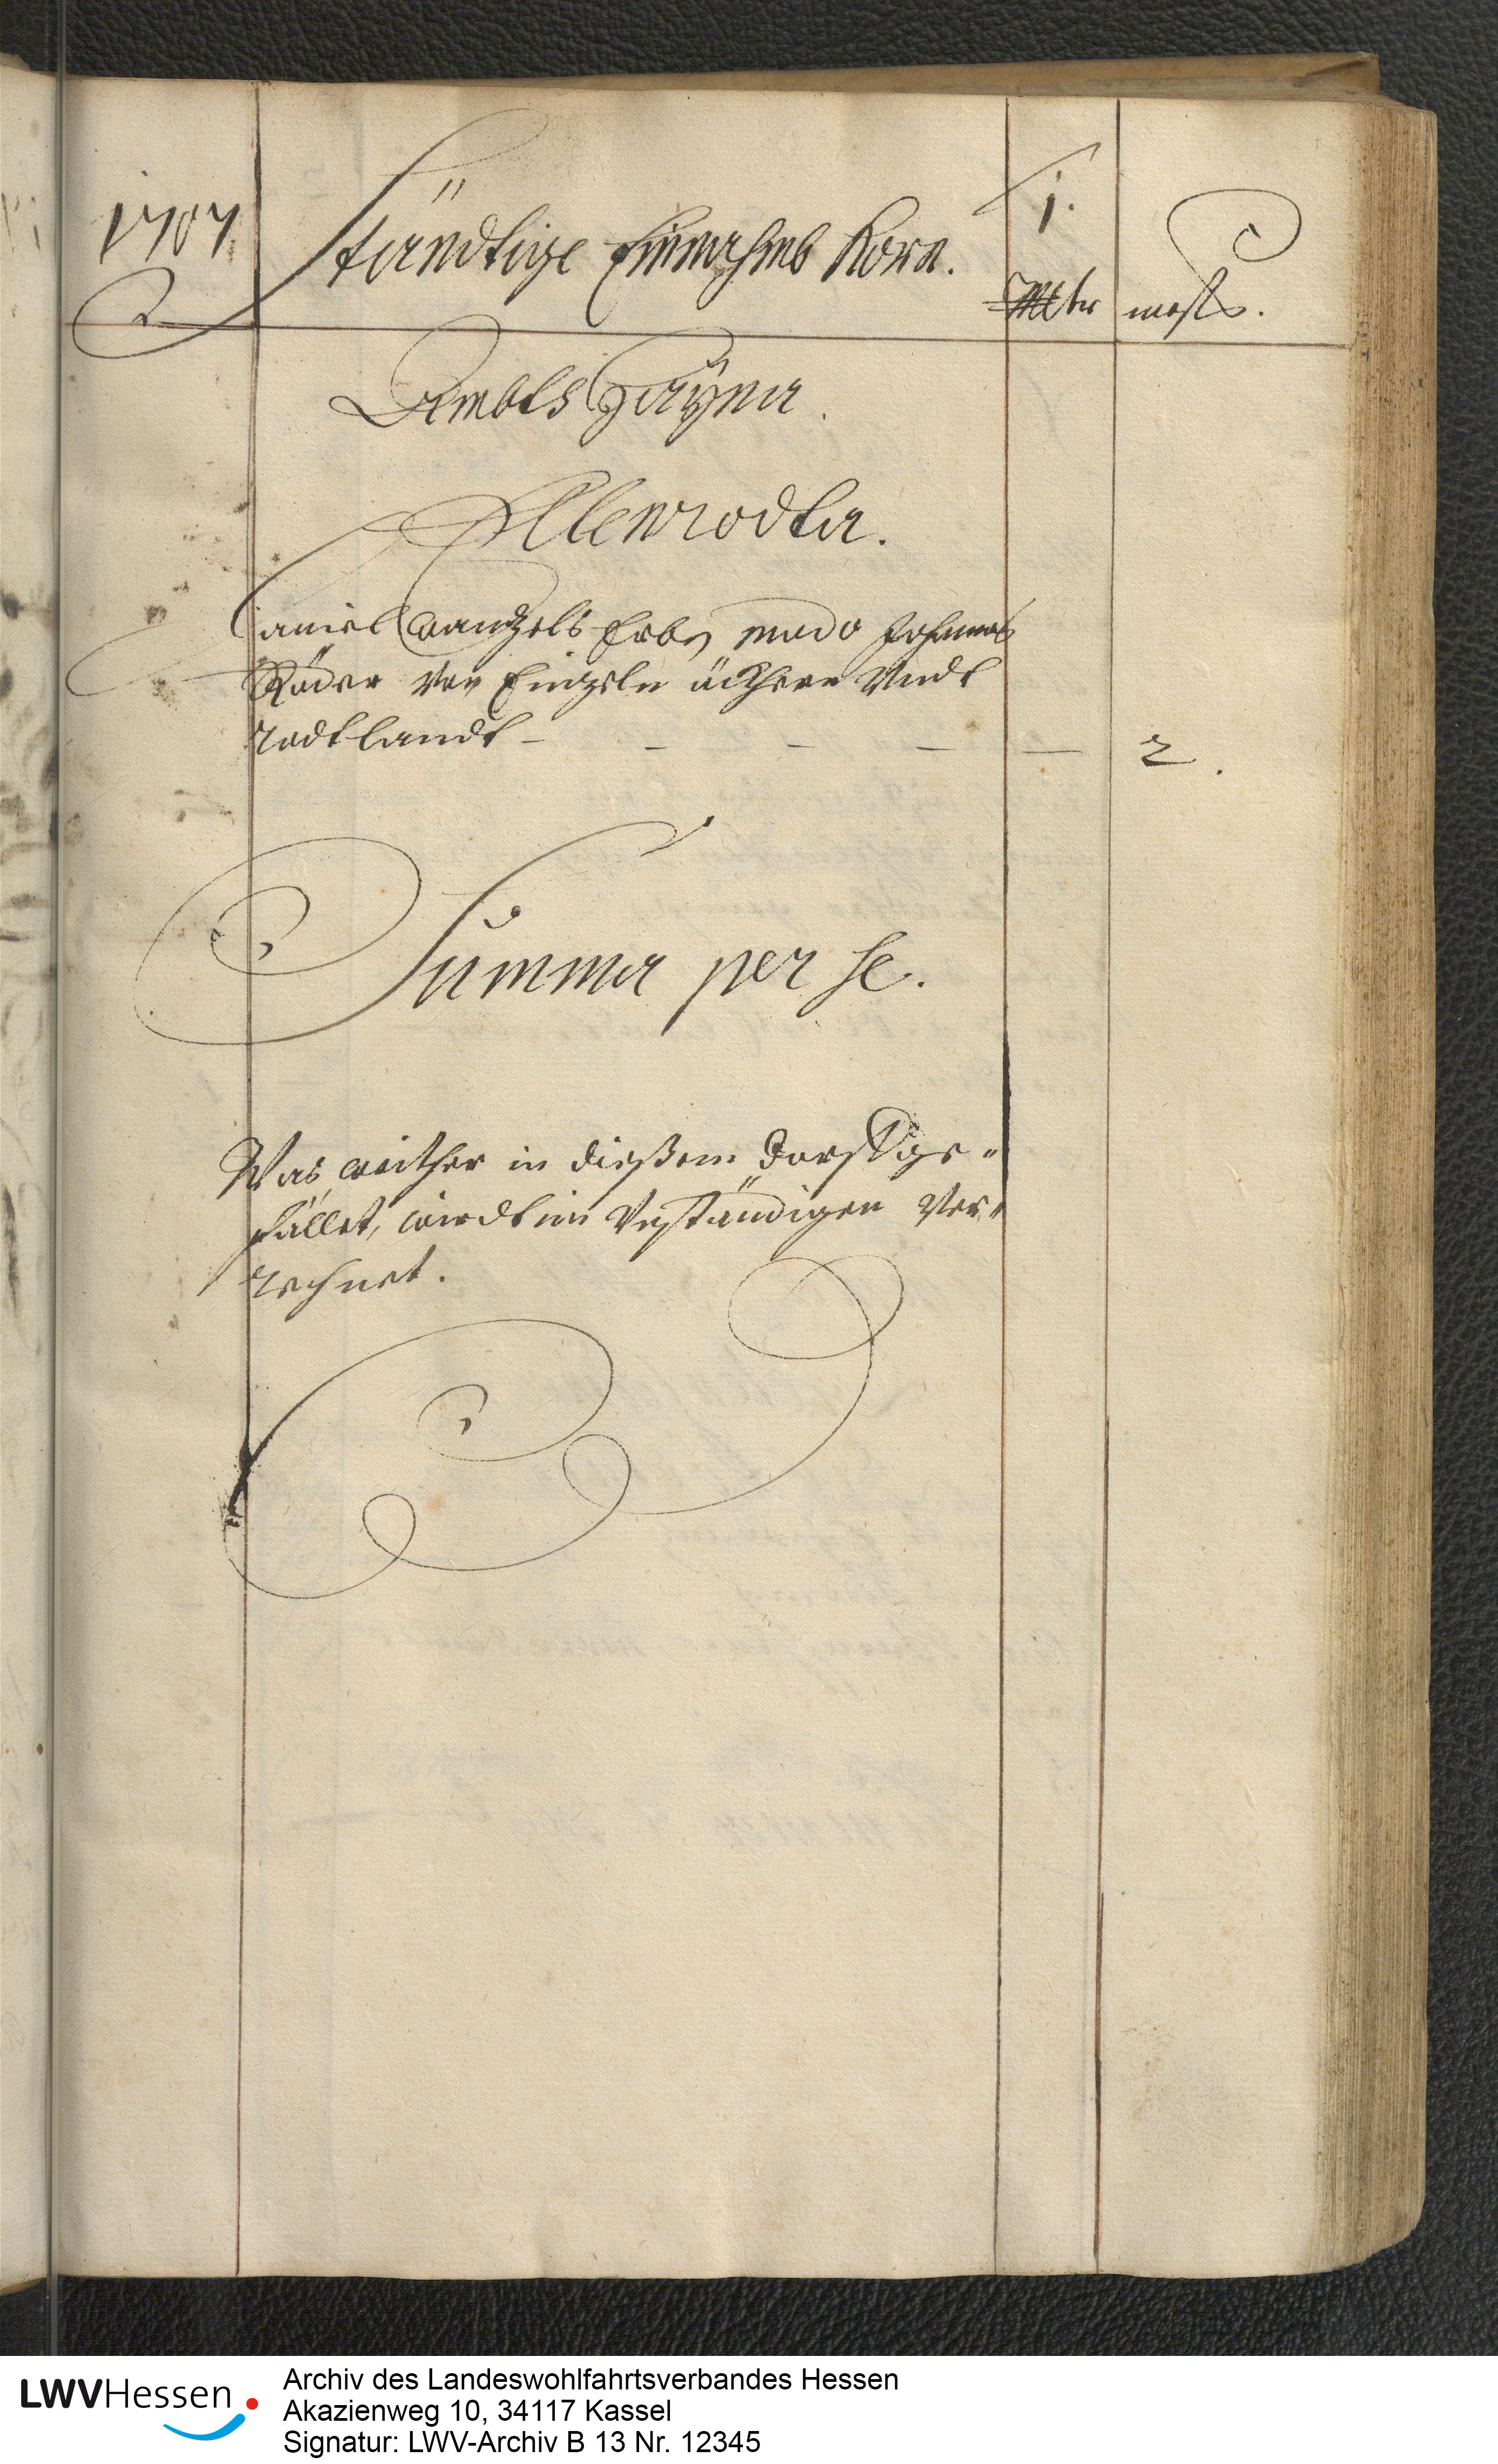 1707
Ständtige Einnahmb Korn.
1.
Mltr mesto.
Ambts Hayna.
Allenrodta.
Daniel Wantzels Erbn modo Johannes
Röder von Eintzeln äckhern Undt
rodtlandt – – – – – 2.
Summa per se.
Was weither in dießem Dorff ge-
fället, wirdt im Unständigen Ver-
rechnet.
LWVHessen
Archiv des Landeswohlfahrtsverbandes Hessen
Akazienweg 10, 34117 Kassel
Signatur: LWV-Archiv B 13 Nr. 12345